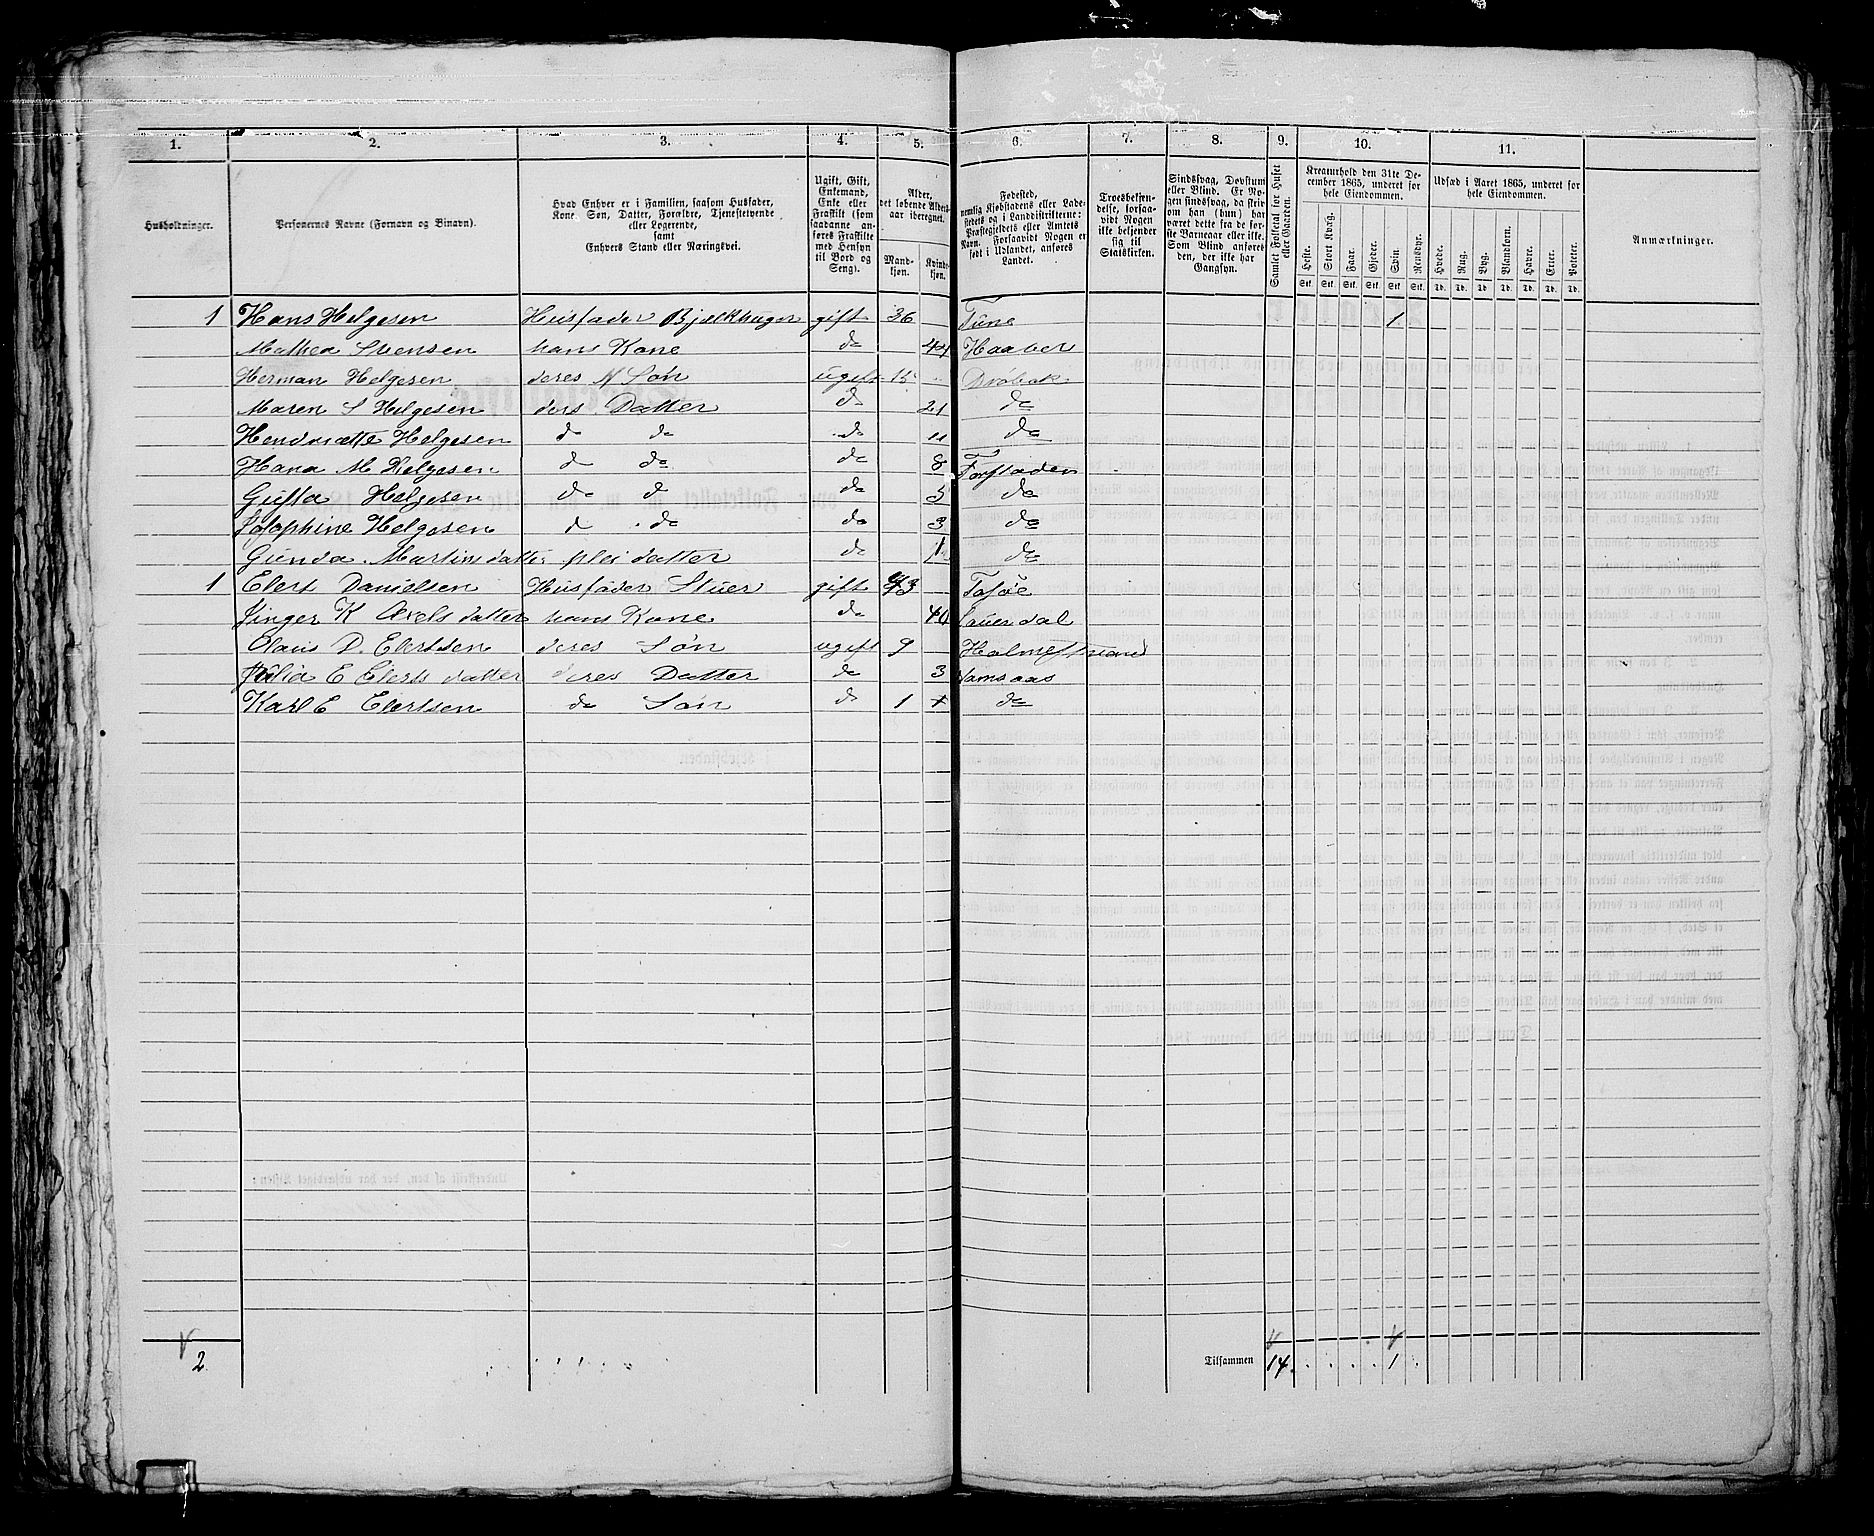 1. 2. 3. 4. 5. 6. 7. 8. 9. 10. 11.
Husholdninger.
Personernes Navne (Fornavn og Binavn).
Hvad Enhver er i Familien, saasom Husfader,
Kone, Søn, Datter, Forældre, Tjenestetyende
eller Logerende,
samt
Enhvers Stand eller Næringsvei.
Ugift, Gift,
Enkemand,
Enke eller
Fraskilt (som
saadanne an-
føres Fraskilte
med Hensyn
til Bord og
Seng).
Alder,
det løbende Alders-
aar iberegnet.
Mand-
kjøn.
Kvind-
kjøn.
Fødested,
nemlig Kjøbstadens eller Lade-
stedets og i Landdistrikterne:
Præstegjeldets eller Amtets
Navn. Forsaavidt Nogen er
født i Udlandet, anføres
Landet.
Troesbekjen-
delse, forsaa-
vidt Nogen
ikke bekjender
sig til
Statskirken.
Sindssvag, Døvstum
eller Blind. Er No-
gen sindssvag, da skriv
om han (hun) har
været dette før de før-
ste Barneaar eller ikke.
Som Blind anføres
den, der ikke har
Gangsyn.
Samlet Folketal for Huset
eller Gaarden.
Kreaturhold den 31te De-
cember 1865, underet for
hele Eiendommen.
Heste. Stort Kvæg. Faar. Gjeder. Svin. Rensdyr.
Stk. Stk. Stk. Stk. Stk. Stk.
Udsæd i Aaret 1865, underet for
hele Eiendommen.
Hvede. Rug. Byg. Blandkorn. Havre. Erter. Poteter.
Td. Td. Td. Td. Td. Td. Td.
Anmærkninger.
1 Hans Helgesen Husfader gift 36 Tune 1
Mathea Svensen hans Kone do 44 Haabøl
Herman Helgesen deres N Søn ugift 15 Drøbak
Maren S Helgesen ders Datter do 21 do
Helgesen d do do 11 do
Hana M Helgesen d do do 8 Forstaden
Gusta Helgesen do d do 5 do
Josephine Helgesen d do do 3 do
Gunda Martinsdatter plei datter do 1 do
1 Elert Danielsen Husfader Stuer gift 43
Jinger K Axelsdatter hans Kone do 40
Claus D. Elertsen deres Søn ugift 9 Holmestrand
Julia E Elertsdatter deres Datter do 3
Karl E Elertsen do Søn d 1 do
2
Tilsammen 14 1